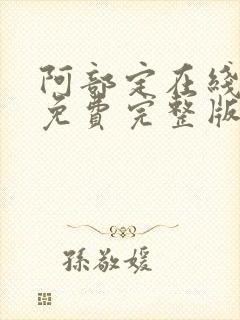 阿部定在线
免費完整版
孫敬媛